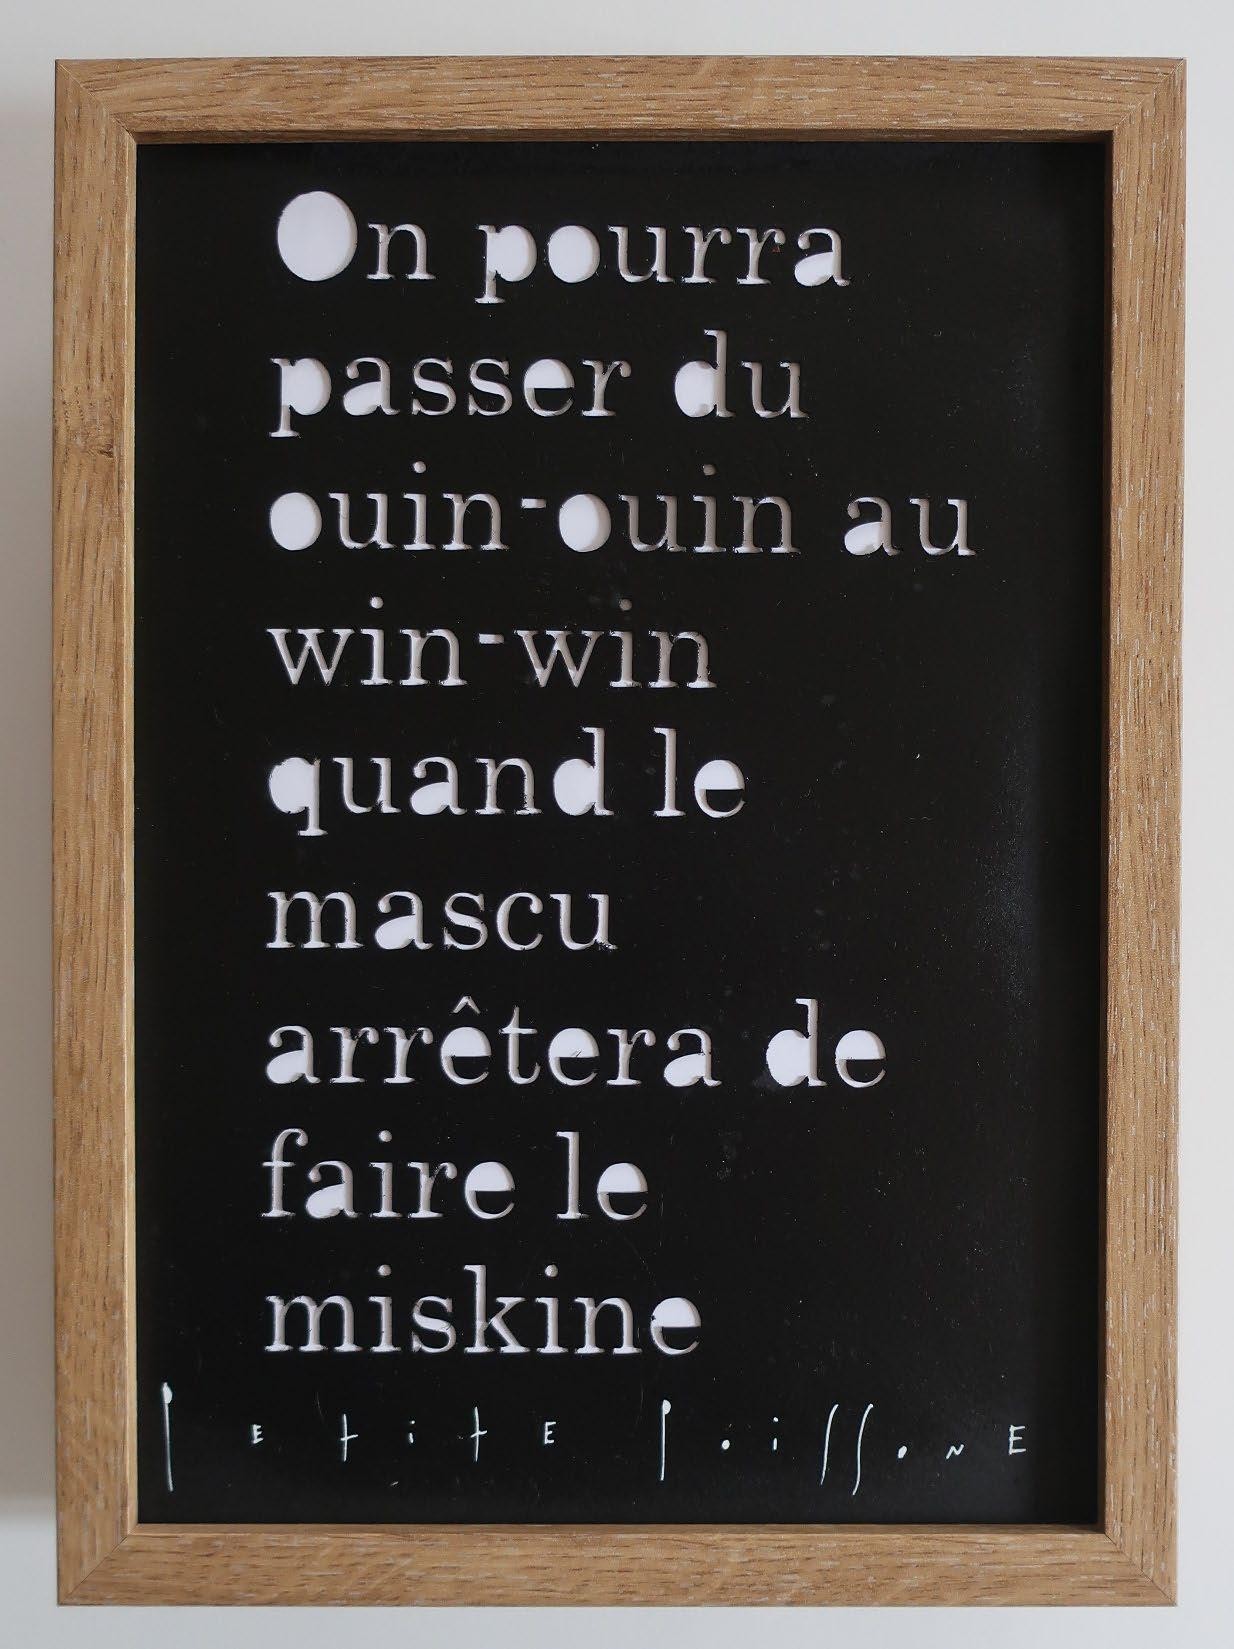 On pourra
passer du
ouin-ouin au
win-win
quand le
mascu
arrêtera de
faire le
miskine
PEtitE PoissonE